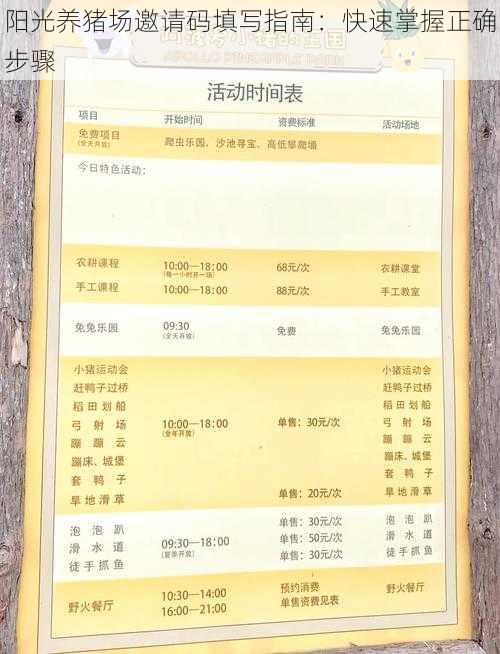 阳光养猪场邀请码填写指南：快速掌握正确
步骤
APOLLO PINEAPPLE PARK
活动时间表
项目 开始时间 资费标准 活动场地
免费项目 爬虫乐园、沙池寻宝、高低攀爬墙
(全天开放)
今日特色活动：
农耕课程 10:00—18:00 68元/次 农耕课堂
(每一小时开一场)
手工课程 10:00—18:00 88元/次 手工教室
兔兔乐园 09:30 免费 兔兔乐园
(全天开放)
小猪运动会 小猪运动会
赶鸭子过桥 赶鸭子过桥
稻田划船 稻田划船
弓射场 10:00—18:00 单售：30元/次 弓射场
(全年开放)
蹦蹦云 蹦蹦云
蹦床、城堡 蹦床、城堡
套鸭子 套鸭子
旱地滑草 单售：20元/次 旱地滑草
泡泡趴 单售：30元/次 泡泡趴
滑水道 09:30—18:00 单售：50元/次 滑水道
(夏季开放)
徒手抓鱼 单售：30元/次 徒手抓鱼
野火餐厅 10:30—14:00 预约消费 野火餐厅
16:00—21:00 单售资费见表